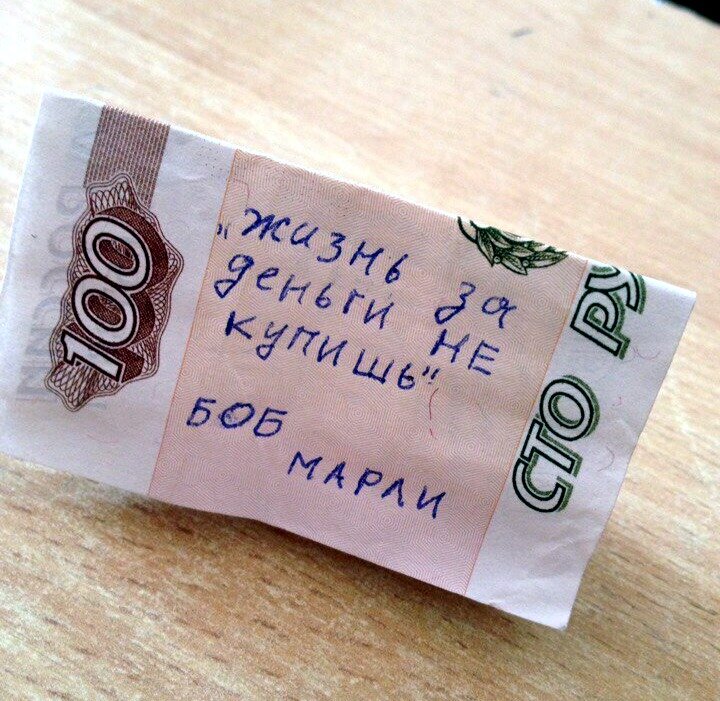 100
„жизнь за
деньги не
купишь"
БОБ
МАРЛИ
СТО РУ